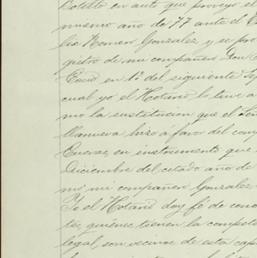 Botello en auto que proveyó el
mismo año de 77 ante el
lio Romero Gonzalez y se pro
gistro de mi compañero Don
en 1º del siguiente
cual yo el Notario lo tuve a
mo la sustitucion que el Señ
llanueva hizo á favor del
Cuevas, en instrumento que
Diciembre del citado año de
mo mi compañero Gonzalez
Yo el Notario doy fé de cono
te, quienes tienen la compete
legal son vecinos de esta cap